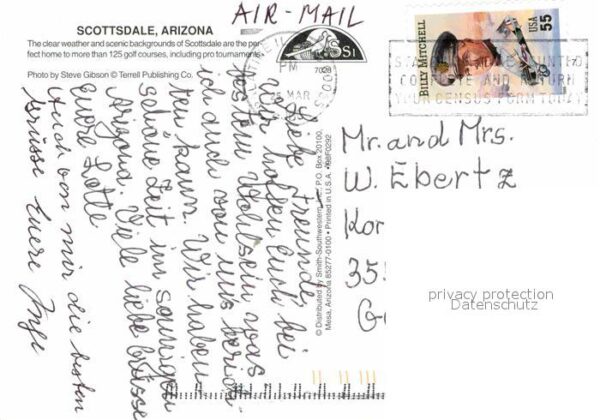 AIR-MAIL
SCOTTSDALE, ARIZONA
The clear weather and scenic backgrounds of Scottsdale are the per-
fect home to more than 125 golf courses, including pro tournaments.
Photo by Steve Gibson © Terrell Publishing Co.
SSI
7028
PM
MAR
2000
BILLY MITCHELL
USA
55
COMPLETE AND RETURN
YOUR CENSUS FORM TODAY
Liebe Freunde,
Wir hoffen Euch bei
bestem Wohlsein was
ich auch von uns berich-
ten kann. Wir haben
schöne Zeit im sonnigen
Arizona. Viele liebe Grüsse
Euere Lotte
Auch von mir die besten
Grüsse Euere Inge
© Distributed by Smith-Southwestern, Inc., P.O. Box 20100,
Mesa, Arizona 85277-0100 • Printed in U.S.A.
Mr. and Mrs.
W. Ebertz
Kor
355
G
privacy protection
Datenschutz